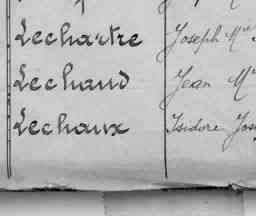 Lechartre Joseph Mie
Lechaud Jean M
Lechaux Isidore Jos